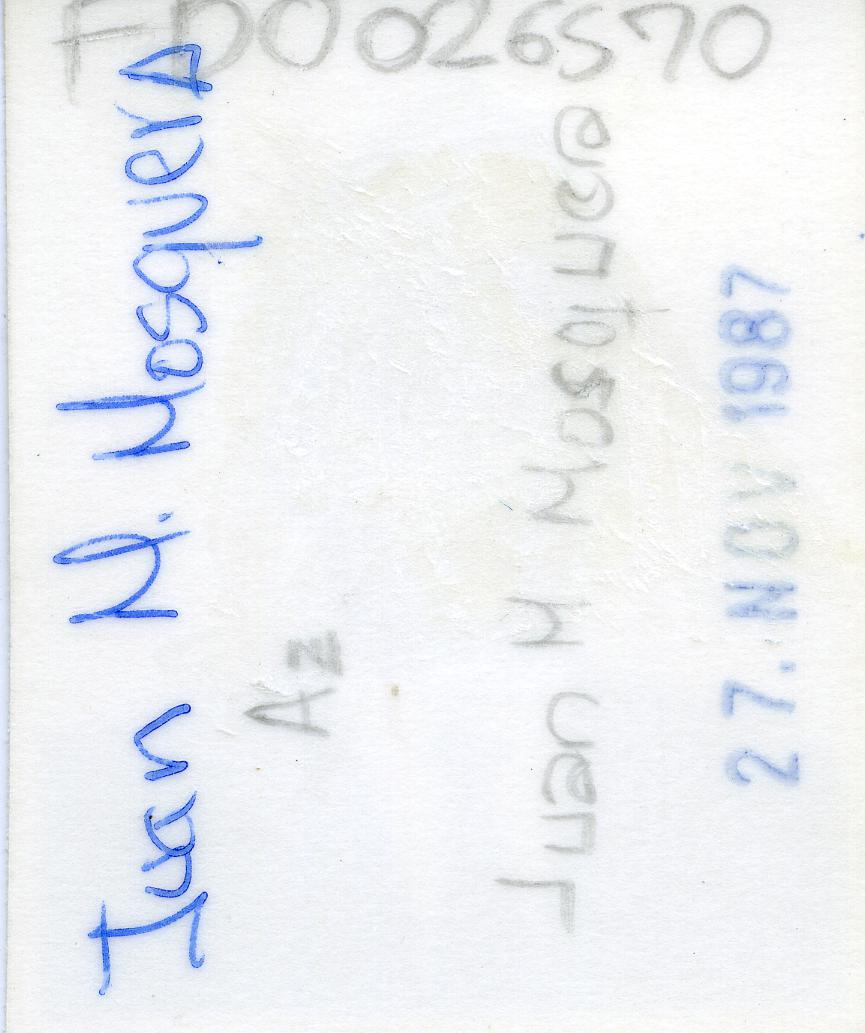 FD0026570
Juan M. MosquerA
Az
Juan M Mosquera
27. NOV 1987